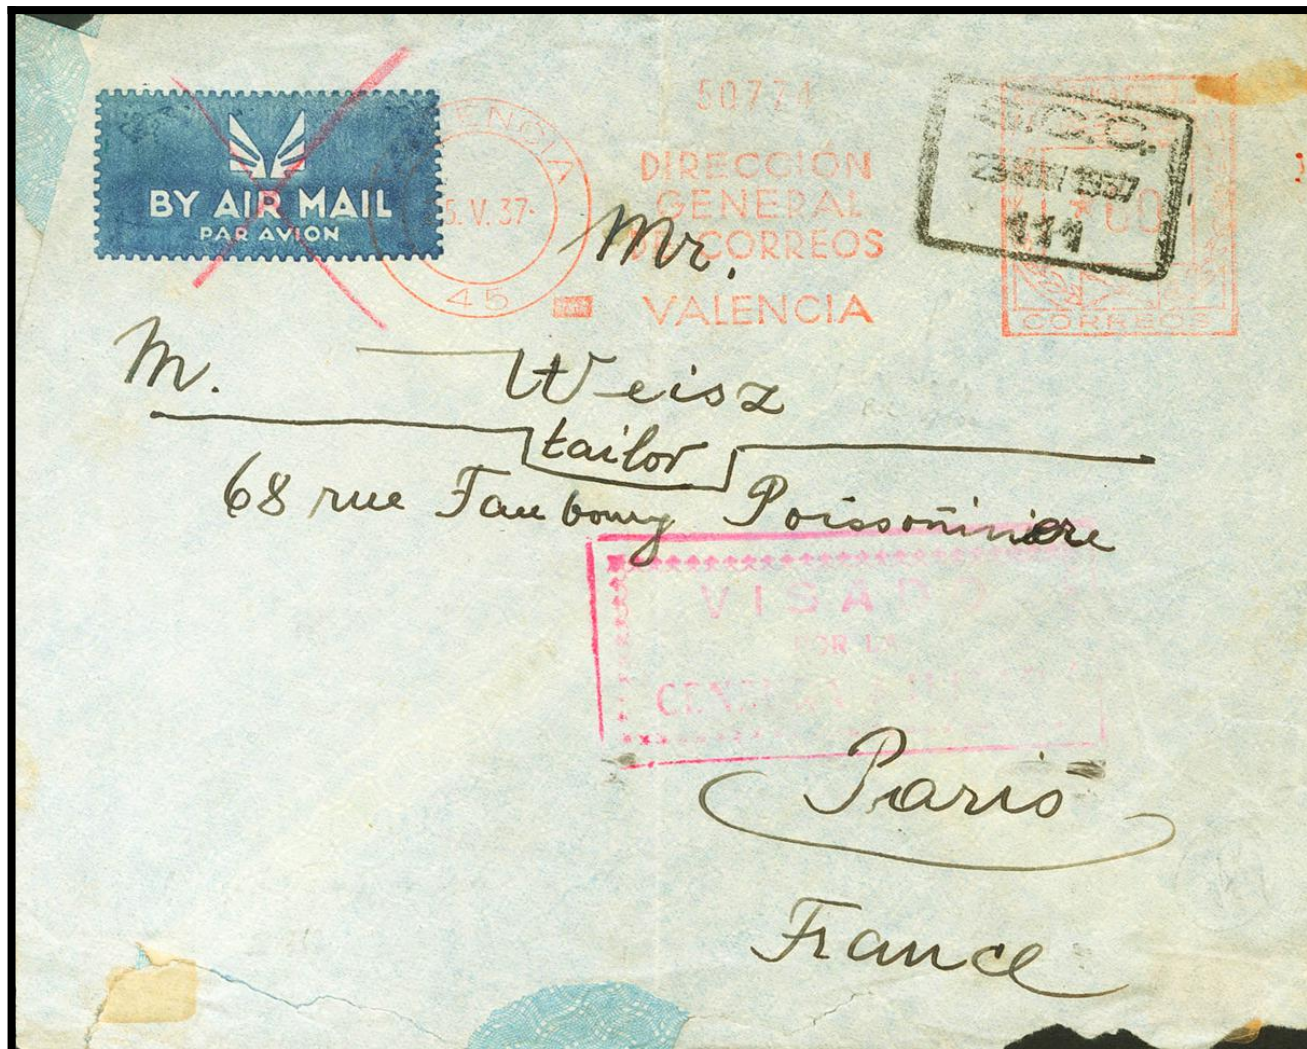 50774
BY AIR MAIL
PAR AVION
5.V.37.
45
DIRECCIÓN
GENERAL
DE CORREOS
VALENCIA
S.C.C.
1937
111
CORREOS
Mr.
M. Weisz
tailor
68 rue Faubourg Poissoñiniere
VISADO
POR LA
CENZURA
Paris
France